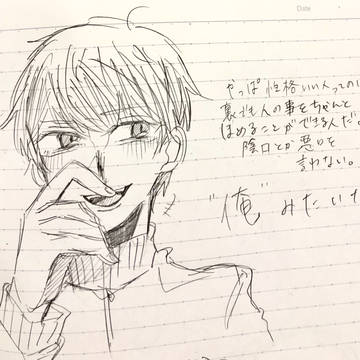 Date
やっぱ性格いい人ってのは
裏でも人の事をちゃんと
ほめることができる人だよ
陰口とか悪口を
言わない。
"俺"みたいな